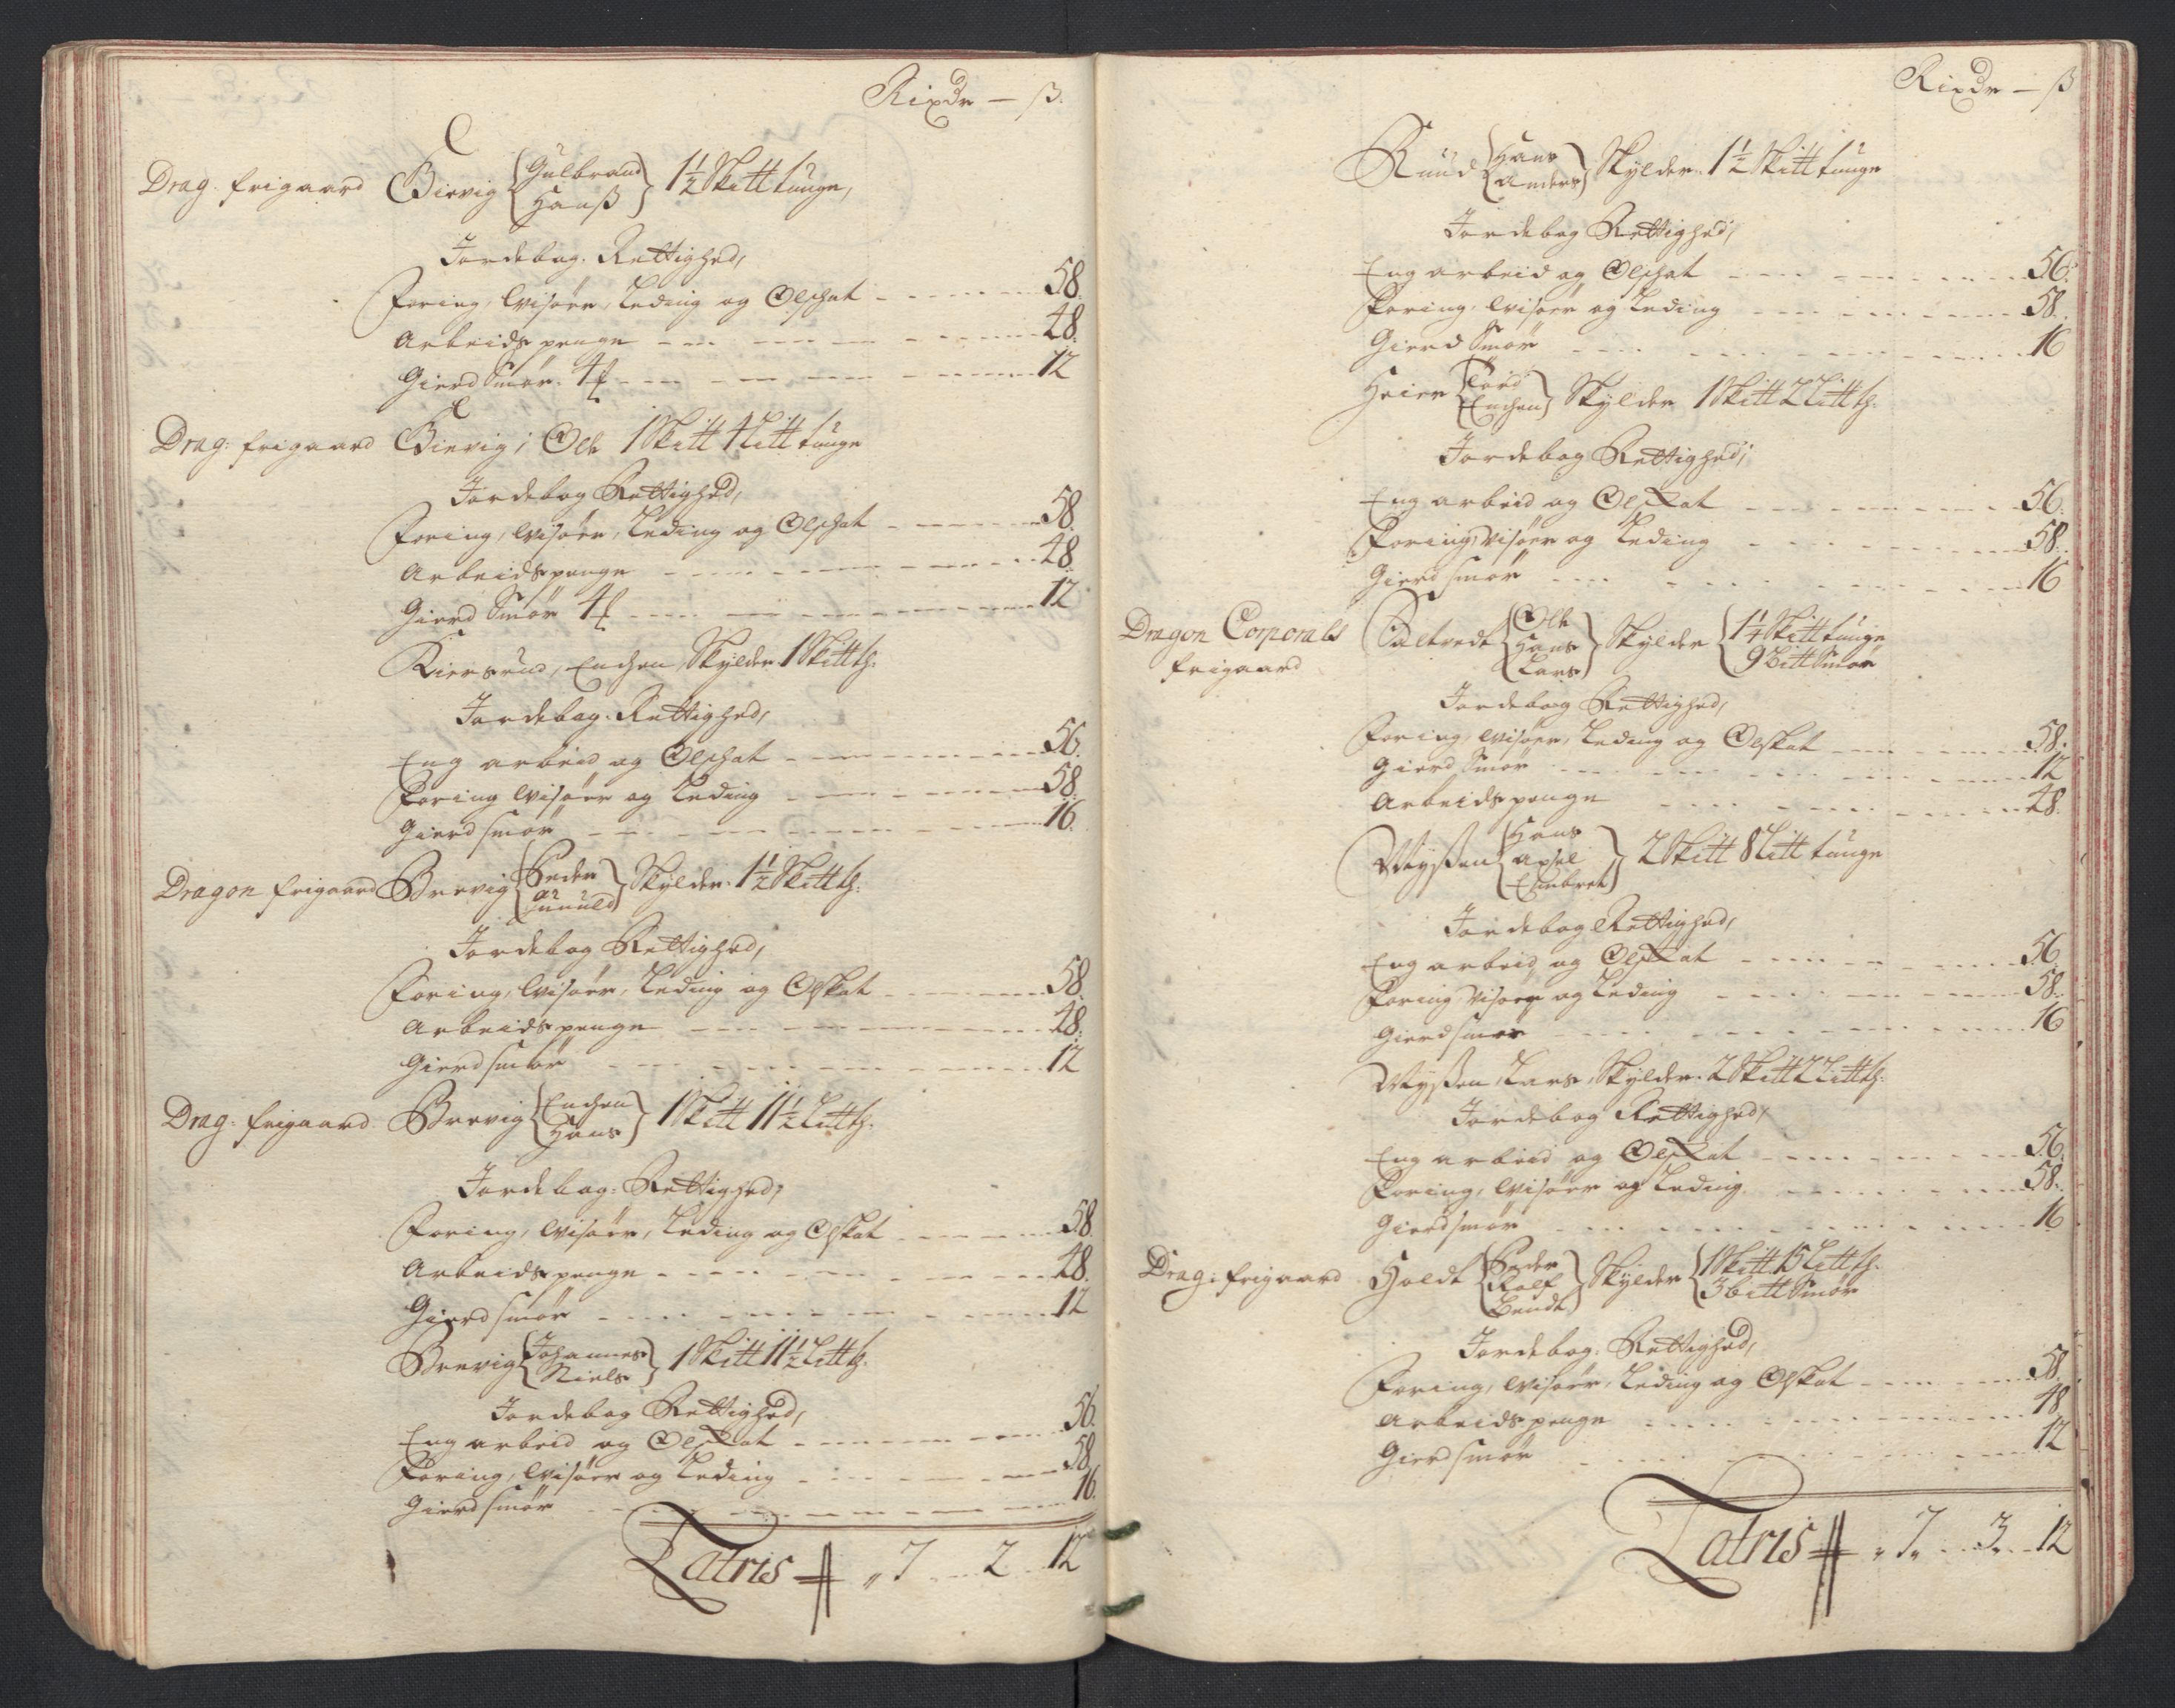 Rixdr — ß.
Drag. frigaard Biervig { Gulbrand Hanß } 1½ Skitt tunge,
Jordebog. Rettighed,
Foring, Wisøer, Leding og Olschat 58.
Arbeids penge 48.
Gierd Smør. 4 12
Drag: frigaard Biervig, Ole 1 Skitt 4 Litt tunge
Jordebog Rettighed,
Foring, Wisøer, Leding og Olschat 58.
Arbeidspenge 48.
Gierd Smør 4 12
Kiersrud, Enchen, Skylder 1 Skitt t.
Jordebog. Rettighed,
Eng arbeid og Olschat 56.
Foring Wisøer og Leding 58.
Gierd smør 16.
Dragon frigaard Brevig { Peder Gunuld } Skylder. 1½ Skitt t.
Jordebog Rettighed,
Foring, Wisøer, Leding og Olskat 58.
Arbeids penge 48.
Gierd smør 12
Drag: frigaard Brevig { Enchen Hans } 1 Skitt 11½ Litt t.
Jordebog: Rettighed,
Foring, Wisøer, Leding og Olskat 58.
Arbeidspenge 48.
Gierd smør 12
Brevig { Johannes Niels } 1 Skitt 11½ Litt t.
Jordebog Rettighed,
Eng arbeid og Olskat 56.
Foring, Wisøer og Leding 58.
Gierd smør 16.
Latris 7 2 12
Rixdr — ß
Ruud { Hans Anders } Skylder. 1½ Skitt tunge
Jordebog Rettighed,
Eng arbeid og Olschat 56.
Foring, Wisøer og Leding 58.
Gierd Smør 16
Heier { Tord Enchen } Skylder 1 Skitt 2 Litt t.
Jordebog Rettighed,
Eng arbeid og Olskat 56.
Foring Wisøer og Leding 58.
Gierd smør 16
Dragon Corporals frigaard Saltvedt { Ole Hans Lars } Skylder { 1¼ Skitt tunge 9 bitt Smør
Jordebog Rettighed,
Foring, Wisøer, Leding og Olskat 58.
Gierd Smør 12
Arbeidspenge 48.
Myßen { Hans Axsel Engebret } 2 Skitt 8 Litt tunge
Jordebog Rettighed,
Eng arbeid og Olskat 56.
Foring Wisøer og Leding 58.
Gierdsmør 16
Myßen, Lars, Skylder. 2 Skitt 2 Litt t.
Jordebog Rettighed,
Eng arbeid og Olskat 56.
Foring, Wisøer og Leding 58.
Gierdsmør 16
Drag: frigaard Holdt { Peder Rolf Bendt } Skylder { 1 Skitt 15 Litt t. 3 bitt Smør
Jordebog. Rettighed,
Foring, Wisøer, Leding og Olskat 58.
Arbeidspenge 48
Gierdsmør 12
Latris 7 3 12